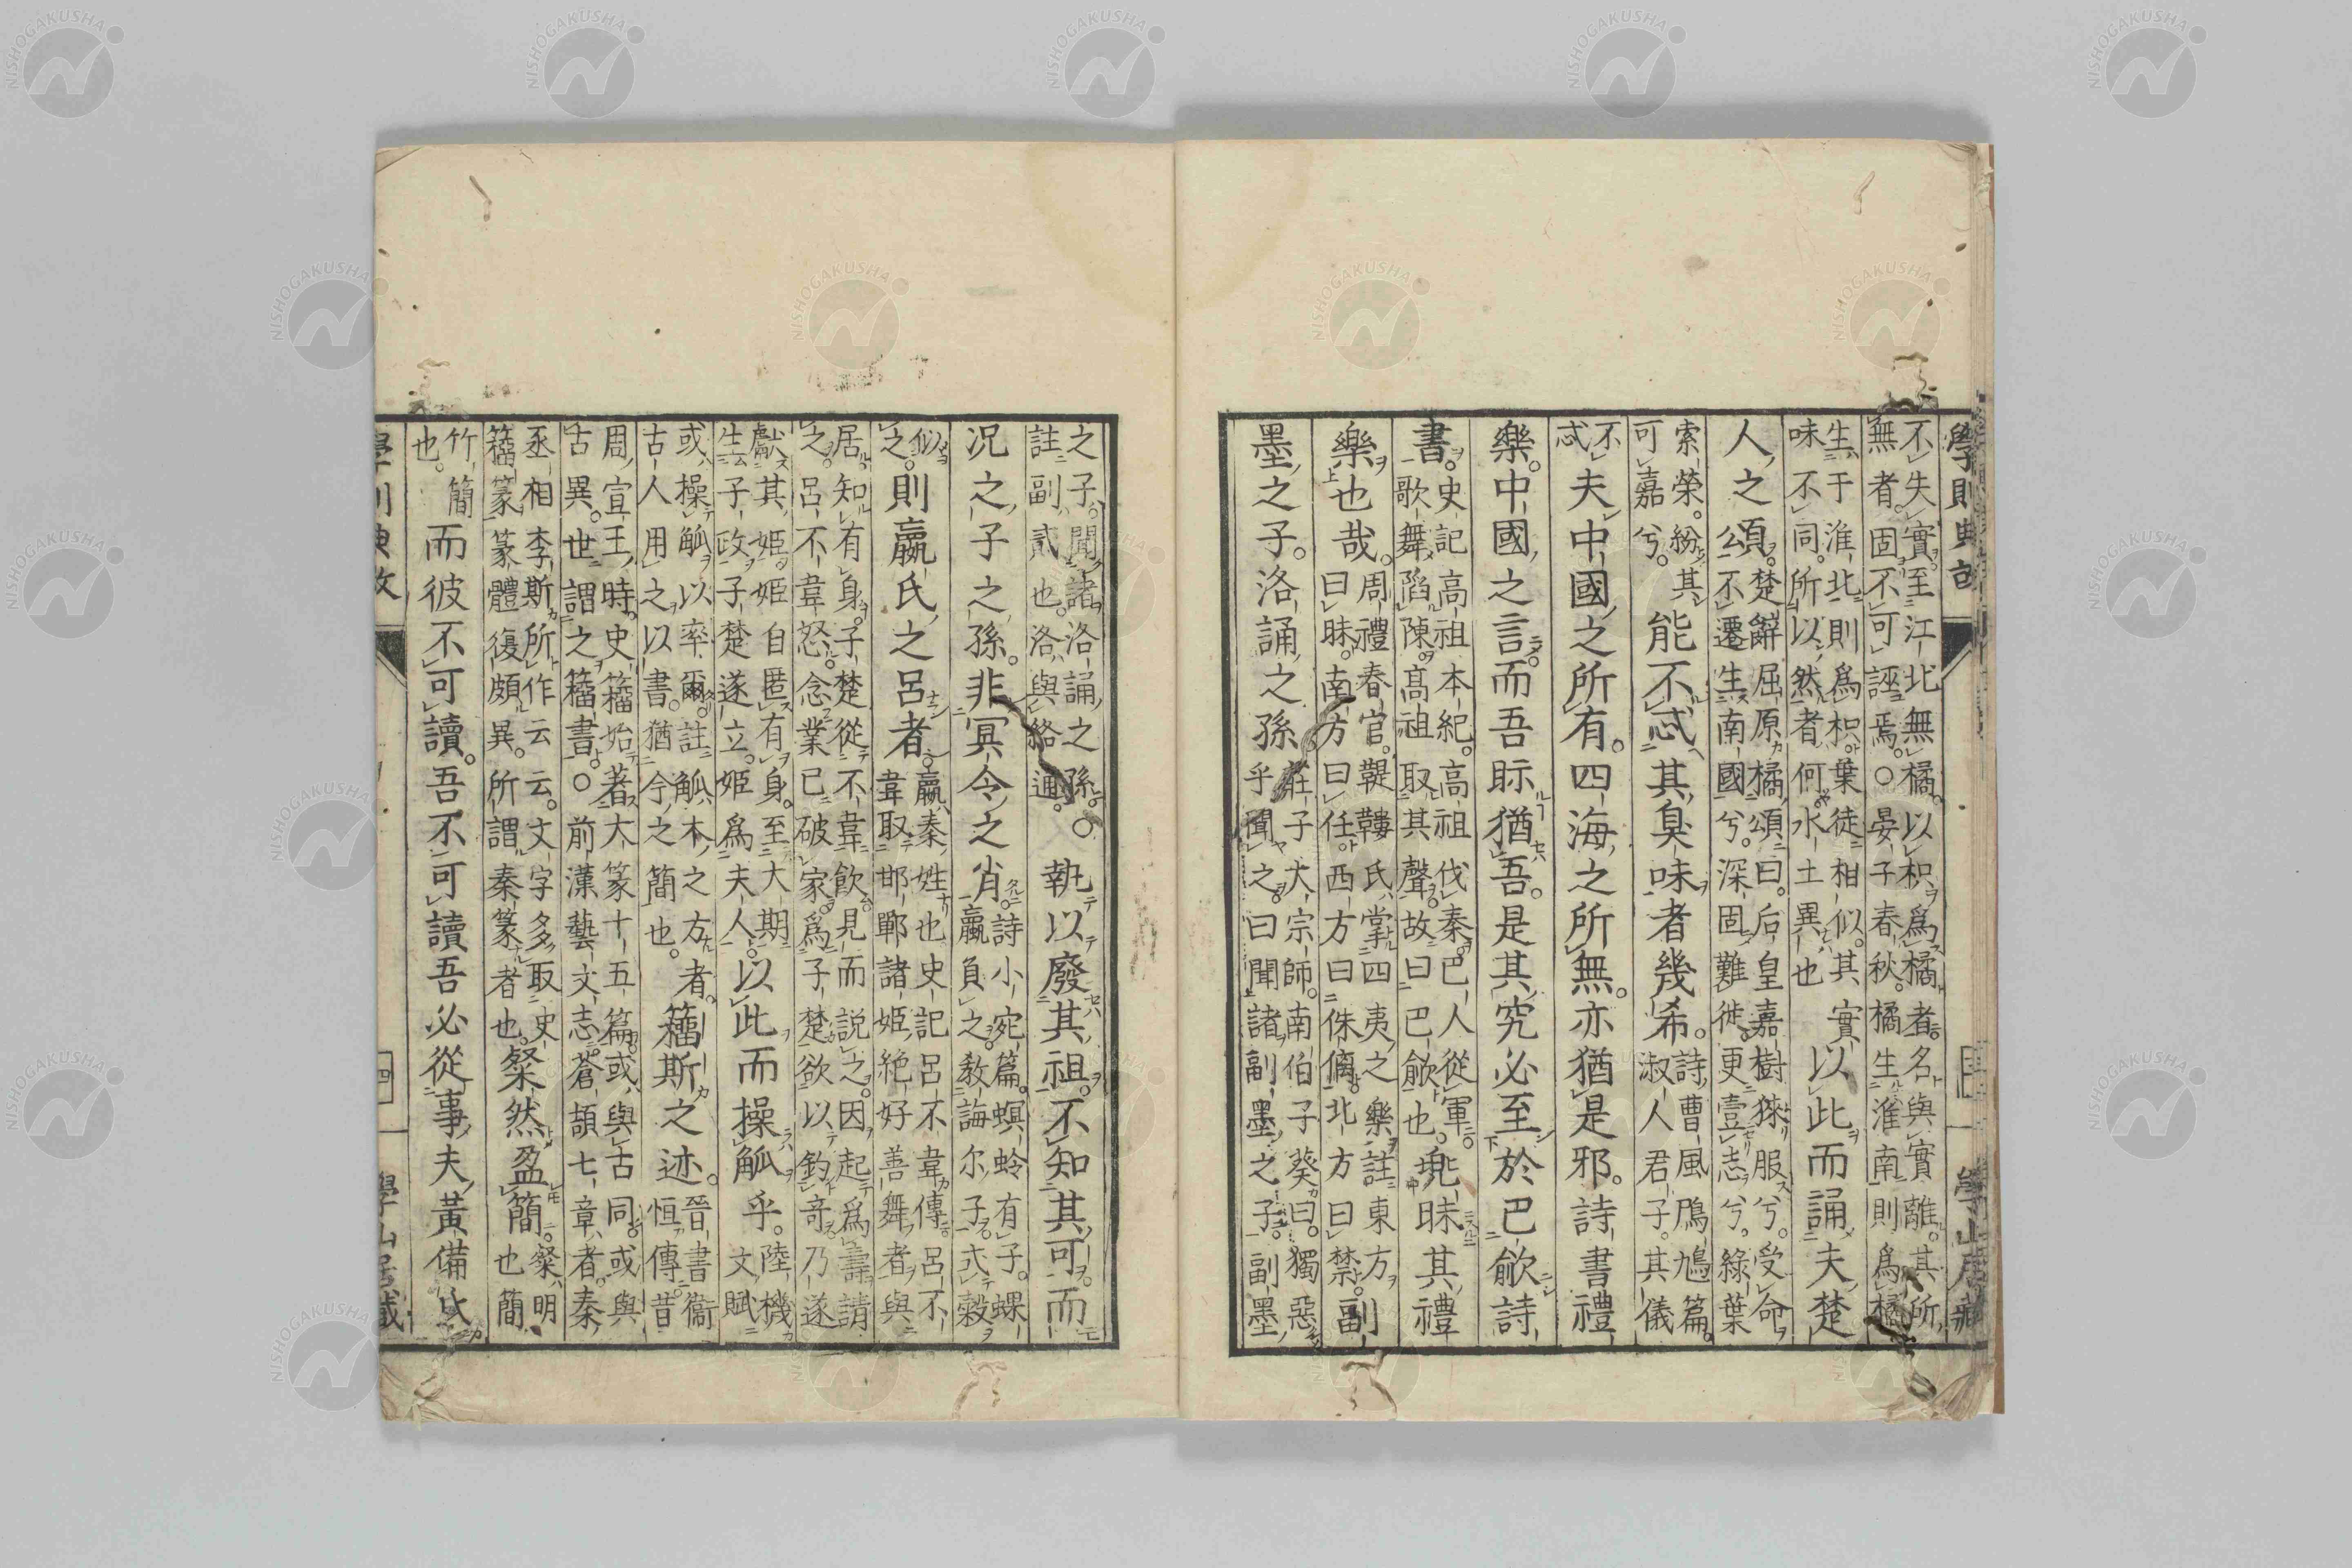 學則典故
學山居藏
不失實。至江北無橘。以枳爲橘者。名與實離。其所
無者。固不可誣焉。○晏子春秋。橘生淮南則爲橘
生于淮北則爲枳。葉徒相似。其實
味不同。所以然者何水土異也
以此而誦夫楚
人之頌。
楚辭屈原橘頌曰。后皇嘉樹。徠服兮。受命
公不遷生南國兮。深固難徙。更壹志兮。綠葉
索榮。紛其
可嘉兮。
能不忒其臭味者幾希。
詩曹風鳲鳩篇。
淑人君子。其儀
不
忒
夫中國之所有。四海之所無。亦猶是邪。詩書禮
樂。中國之言。而吾眎猶吾。是其究必至於巴歈詩
書。
史記高祖本紀。高祖伐秦。巴人從軍。
歌舞䧟陳。高祖取其聲。故曰巴歈也。
昧其禮
樂也哉。
周禮春官。鞮鞻氏掌四夷之樂。註東方
曰昧。南方曰任。西方曰侏㒧。北方曰禁。
副
墨之子。洛誦之孫
莊子大宗師。南伯子葵曰。獨惡
乎聞之。曰聞諸副墨之子。副墨
之子。聞諸洛誦之孫。○
註副貳也。洛與絡通。
執以廢其祖。不知其可。而
况之子之孫。非冥令之肖。
詩小宛篇。螟蛉有子。蜾
蠃負之。教誨尔子。式穀
似
之。
則嬴氏之呂者。
嬴秦姓也史記呂不韋傳。呂不
韋取邯鄲諸姬。絶好善舞者與
居知有身。子楚從不韋飲。見而説之。因起爲壽請
之。呂不韋怒。念業已破家。爲子楚。欲以釣奇。乃遂
獻其姬。姬自匿有身。至大期
生子政。子楚遂立。姬爲夫人。
以此而操觚乎。
陸機
文賦
或操觚以率爾。註觚木之方者。
古人用之以書。猶今之簡也。
籀斯之迹。
晉書衞
恒傳。昔
周宣王時。史籀始著大篆十五篇。或與古同。或與
古異。世謂之籀書。○前漢藝文志。蒼頡七章者。秦
丞相李斯所作云云。文字多取史
籀篆。篆體復頗異。所謂秦篆者也。
粲然盈簡。
粲明
也簡
竹簡
也。
而彼不可讀。吾不可讀。吾必從事夫黃備氏
學則典故
四
學山居藏